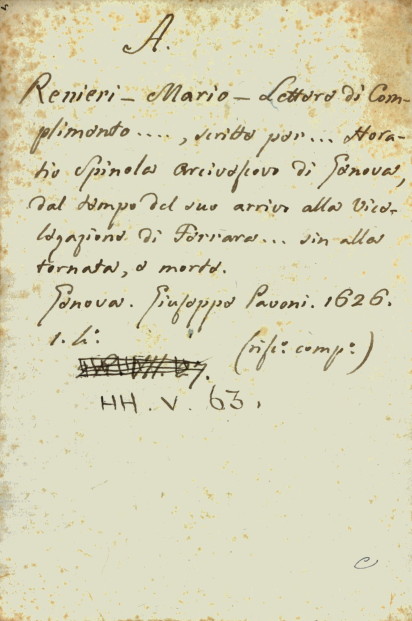 A.
Renieri - Mario - Lettere di Com-
plimento ...., scritte per ... Hora-
tio Spinola Arcivescovo di Genova,
dal tempo del suo arrivo alla Vice-
legazione di Ferrara ... sin alla
tornata, e morte.
Genova. Giuseppe Pavoni. 1626.
1. 4º.
(rife. comp.e)
HH. V. 63.